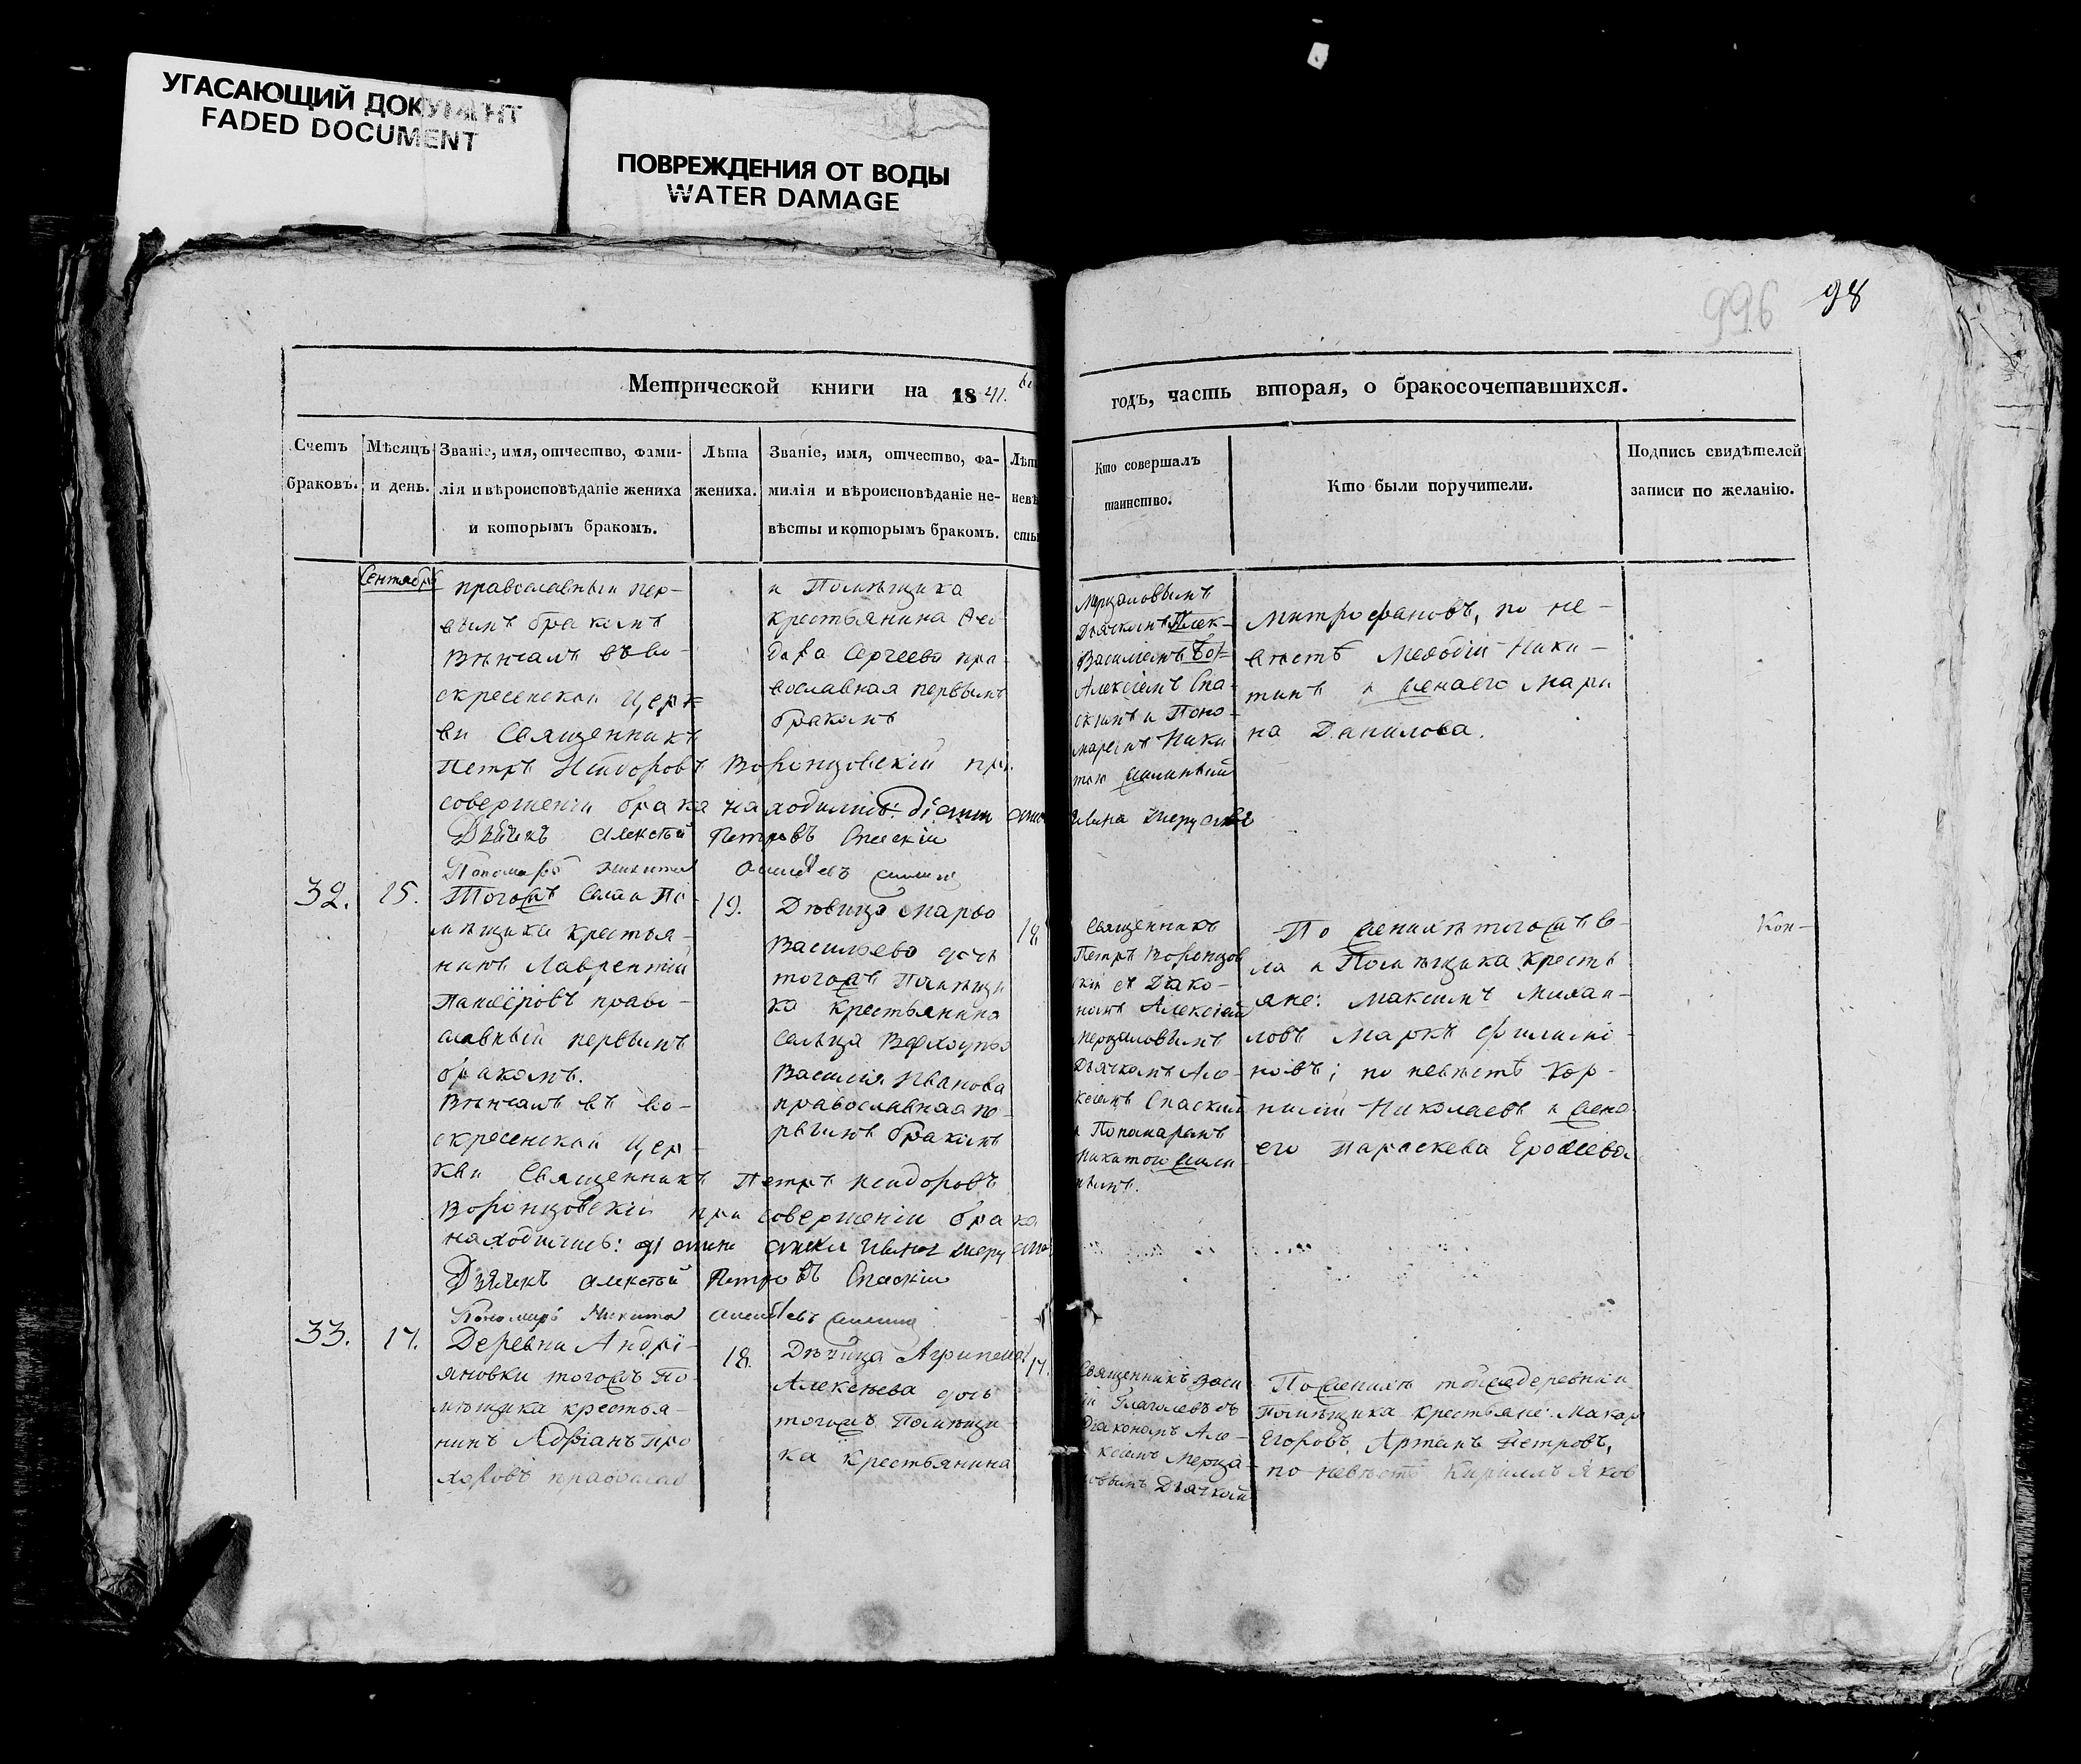 УГАСАЮЩИЙ ДОКУМЕНТ
FADED DOCUMENT
ПОВРЕЖДЕНИЯ ОТ ВОДЫ
WATER DAMAGE
996 98
Метрической книги на 1841.
годъ, часть вторая, о бракосочетавшихся.
Счетъ
браковъ.
Мѣсяцъ
и день.
Званіе, имя, отчество, фами-
лія и вѣроисповѣданіе жениха
и которымъ бракомъ.
Лѣта
жениха.
Званіе, имя, отчество, фа-
милія и вѣроисповѣданіе не-
вѣсты и которымъ бракомъ.
Лѣт
невѣ
сты
Кто совершалъ
таинство.
Кто были поручители.
Подпись свидѣтелей
записи по желанію.
Сентябрь
православный пер-
вымъ бракомъ
Вѣнчалъ въ Во-
скресенской Церк
ви Священникъ
Петръ Исидоровъ Воронцовскій при
совершеніи брака находились:
Дьячекъ Алексѣй Петровъ Спаскій
Пономарь Никита
и Помѣщика
крестьянина Ѳео
дора Сергеева пра-
вославная первымъ
бракомъ
Мерцаловымъ
Алексіемъ Спа-
скимъ и Поно-
маремъ Ники
тою
Митрофановъ, по не-
вестѣ Меѳодій Ники-
тинъ и жена его Мари
на Данилова.
32.
15.
Тогожъ Села и По-
мѣщика крестья-
нинъ Лаврентій
право-
славный первымъ
бракомъ.
Вѣнчалъ въ Во-
скресенской Цер-
кви Священникъ Петръ Исидоровъ
Воронцовскій при совершеніи брака
находились:
Дьячекъ Алексѣй Петровъ Спаскій
Пономарь Никита
19.
Дѣвица Марѳа
Васильева дочь
тогожъ Помѣщи
ка Крестьянина
сельца
Василія Иванова
православная пе-
рвымъ бракомъ
18
Священникъ
Петръ Воронцов
скій съ Діако-
номъ Алексіемъ
Мерцаловымъ
Дьячкомъ Але-
ксіемъ Спаскимъ
и Пономаремъ
Никитою
По женихѣ тогожъ Се-
ла и Помѣщика кресть
яне: Максимъ Михаи-
ловъ Маркъ Филипо-
новъ; по невѣстѣ Кор-
нилій Николаевъ и жена
его Параскева Ерофѣева
Кон-
33.
17.
Деревни Андрі-
яновки тогожъ По-
мѣщика крестья-
нинъ Адріанъ Про
хоровъ православ
18.
Дѣвица Агрипена
Алексѣева дочь
тогожъ Помѣщи-
ка Крестьянина
17.
Священникъ Васи
лій Глаголевъ съ
Діакономъ Але-
ксіемъ Мерца-
ловымъ Дьячком
По женихѣ тойже деревни и
Помѣщика крестьяне: Макар
Егоровъ, Артемъ Петровъ,
по невѣстѣ Кириллъ Яков